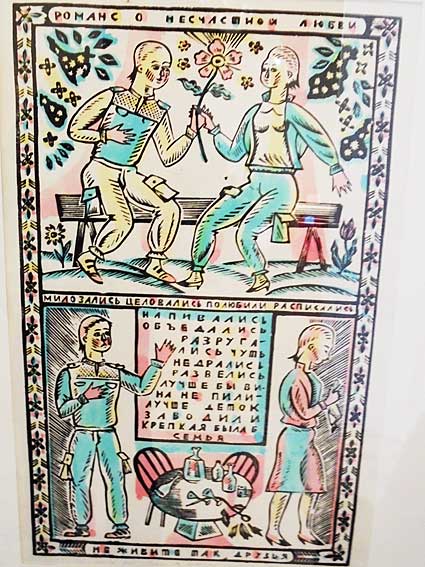 РОМАНС О НЕСЧАСТНОЙ ЛЮБВИ
МИЛОЗАЛИСЬ ЦЕЛОВАЛИСЬ ПОЛЮБИЛИ РАСПИСАЛИСЬ
НАПИВАЛИСЬ
ОБЪЕДАЛИСЬ
РАЗРУГА-
ЛИСЬ ЧУТЬ
НЕ ДРАЛИСЬ
РАЗВЕЛИСЬ
ЛУЧШЕ БЫ ВИ-
НА НЕ ПИЛИ-
ЛУЧШЕ ДЕТОК
ЗАВОДИЛИ
КРЕПКАЯ БЫЛА Б
СЕМЬЯ
НЕ ЖИВИТЕ ТАК, ДРУЗЬЯ